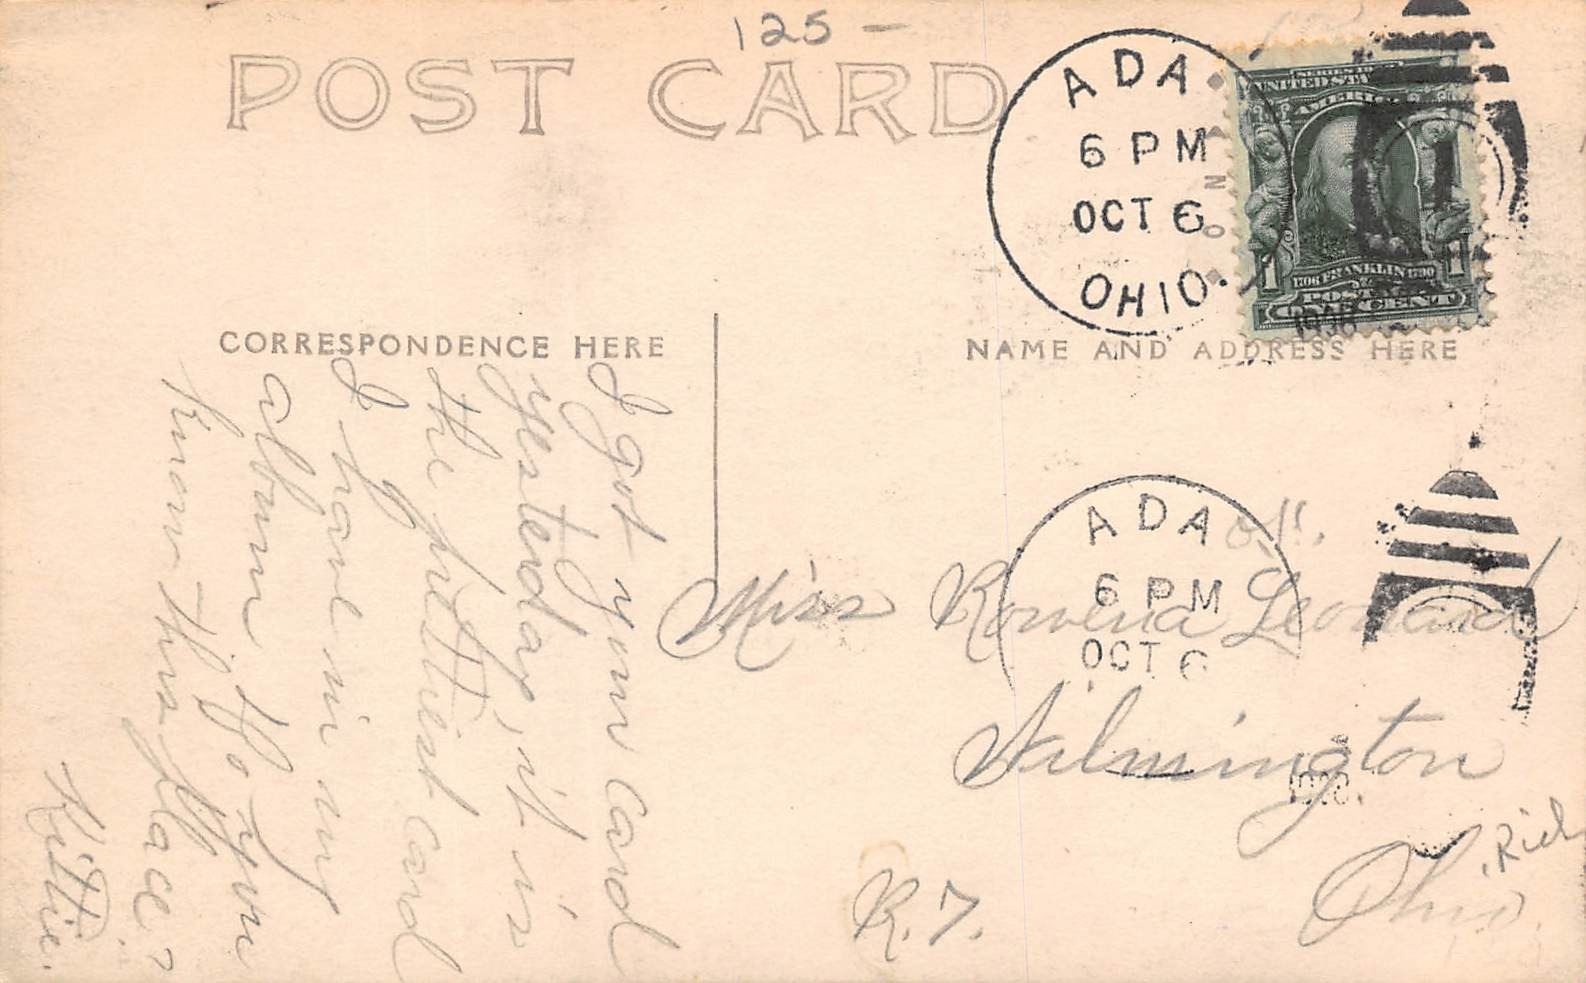 125 -
POST CARD
ADA
6 PM
OCT 6
OHIO.
1908
SERIES 1902
UNITED STATES
AMERICA
1706 FRANKLIN 1790
POSTAGE
1 ONE CENT 1
AZO
CORRESPONDENCE HERE
NAME AND ADDRESS HERE
I got your card
yesterday, it is
the prettiest card
I have in my
album. Do you
know this place?
Kittie.
ADA
6 PM
OCT 6
1908.
Miss Rowena Leonard
Wilmington
Ohio.
R. 7.